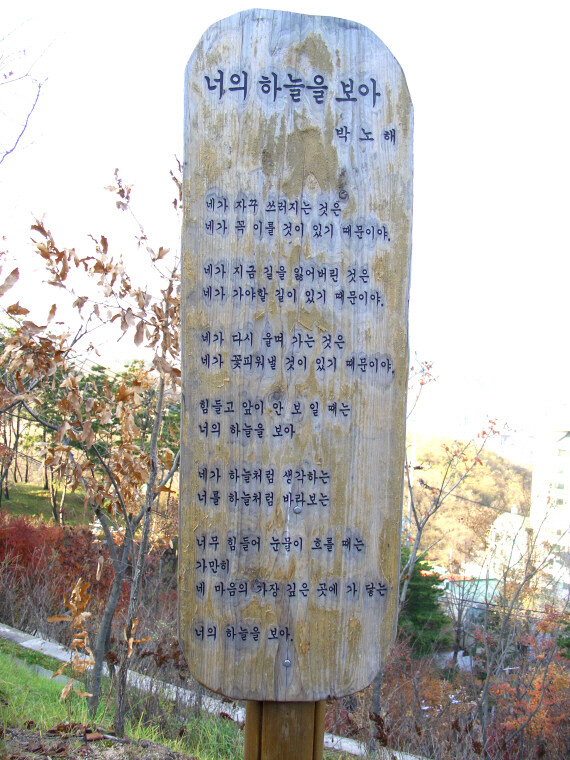 너의 하늘을 보아
박노해
네가 자꾸 쓰러지는 것은
네가 꼭 이룰 것이 있기 때문이야.
네가 지금 길을 잃어버린 것은
네가 가야할 길이 있기 때문이야.
네가 다시 울며 가는 것은
네가 꽃피워낼 것이 있기 때문이야.
힘들고 앞이 안 보일 때는
너의 하늘을 보아
네가 하늘처럼 생각하는
너를 하늘처럼 바라보는
너무 힘들어 눈물이 흐를 때는
가만히
네 마음의 가장 깊은 곳에 가 닿는
너의 하늘을 보아.